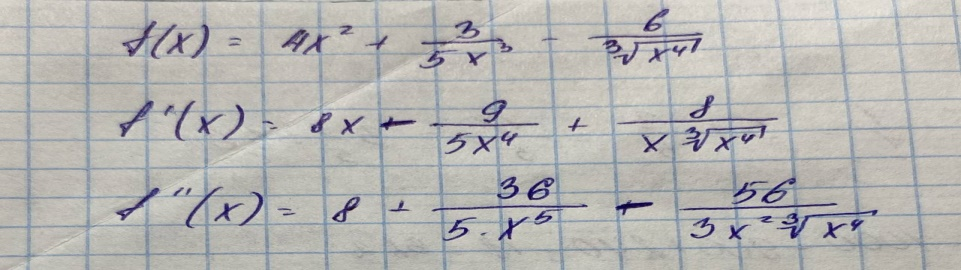 f(x) = 4x² + 3/(5x³) - 6/∛(x⁴)
f'(x) = 8x - 9/(5x⁴) + 8/(x∛(x⁴))
f''(x) = 8 + 36/(5·x⁵) - 56/(3x²∛(x⁴))